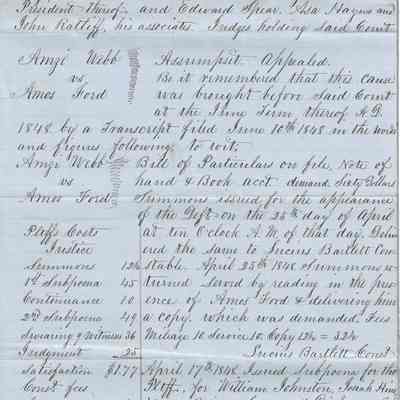 President Thereof and Edward Spear, Asa Hayws and
John Ratliff, his associates. Judges holding Said Court
Amzi Webb
vs
Amos Ford
Assumpsit - Appealed.
Be it remembered that this cause
was brought before Said Court
at the June Term thereof A.D.
1848 by a Transcript filed June 10th 1848 in the words
and figures following to wit,
Amzi Webb
vs
Amos Ford
Bill of Particulars on file, Note of
hand & Book acct. demand Sixty Dollars
Summons issued for the appearance
of the Deft on the 28th day of April
at ten O'clock A.M. of that day. Deliv
ered the same to Lucius Bartlett Con
stable. April 25th 1848 Summons re
turned Served by reading in the pres
ence of Amos Ford & delivering him
a copy. which was demanded. Fees.
Mileage 10. Service 10. Copy 12½ = 32½
Lucius Bartlett Const.
April 17th 1848. Issued Subpoena for the
Pltff. for William Johnston, Josah
Pltffs Costs
Justice
Summons 12½
1st Subpoena 45
Continuance 10
2nd Subpoena 49
Swearing 9 Witness 36
Judgment 25
Satisfaction $1.77
Const. fees